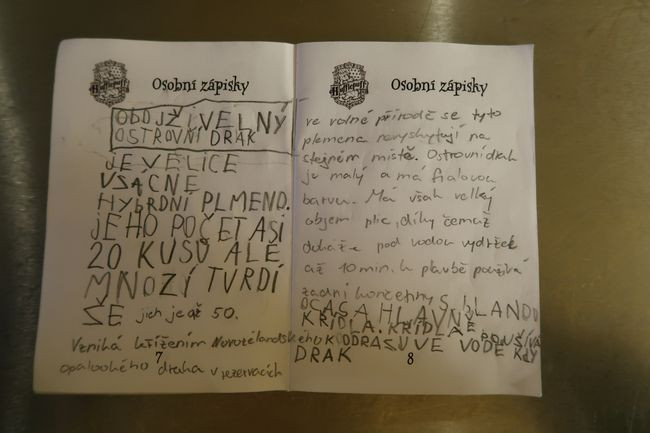 Hufflepuff
Osobní zápisky
OBOJŽIVELNÝ
OSTROVNÍ DRAK
JE VELICE
VSÁCNÉ
HYBRDNÍ PLMENO.
JEHO POČET ASI
20 KUSŮ ALE
MNOZÍ TVRDÍ
ŽE jich je až 50.
Vzniká křížením Novozélandského
opalookého draka v rezervacích
7
Hufflepuff
Osobní zápisky
ve volné přírodě se tyto
plemena nevyskytují na
stejném místě. Ostrovní drak
je malý a má fialovou
barvu. Má však velký
objem plic, díky čemuž
dokáže pod vodou vydržet
až 10 min. k plavbě používá
zadní končetiny S. BLANOU
OCAS A HLAVNĚ
KŘÍDLA. KŘÍDLA POUŽÍVÁ
K ODRASU VE VODĚ KDY
DRAK
8